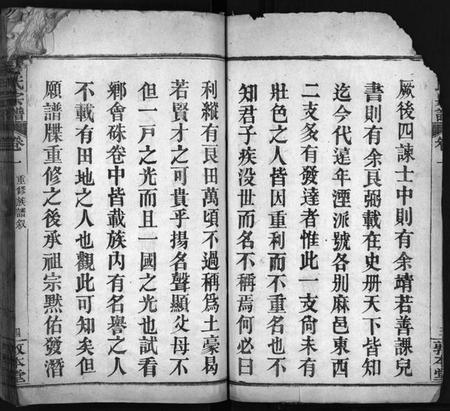 厥後四諫士中則有余靖若善課兒
書則有余良弼載在史册天下皆知
迄今代遠年湮派號各別麻邑東西
二支多有發達者惟此一支尚未有
壯色之人皆因重利而不重名也不
知君子疾没世而名不稱焉何必曰
利縱有良田萬頃不過稱爲土豪曷
若賢才之可貴乎揚名聲顯父母不
但一戸之光而且一國之光也試看
鄉會硃卷中皆載族內有名譽之人
不載有田地之人也觀此可知矣但
願譜牒重修之後承祖宗黙佑發潛
氏宗譜 卷一 重修族譜叙 四 敦本堂